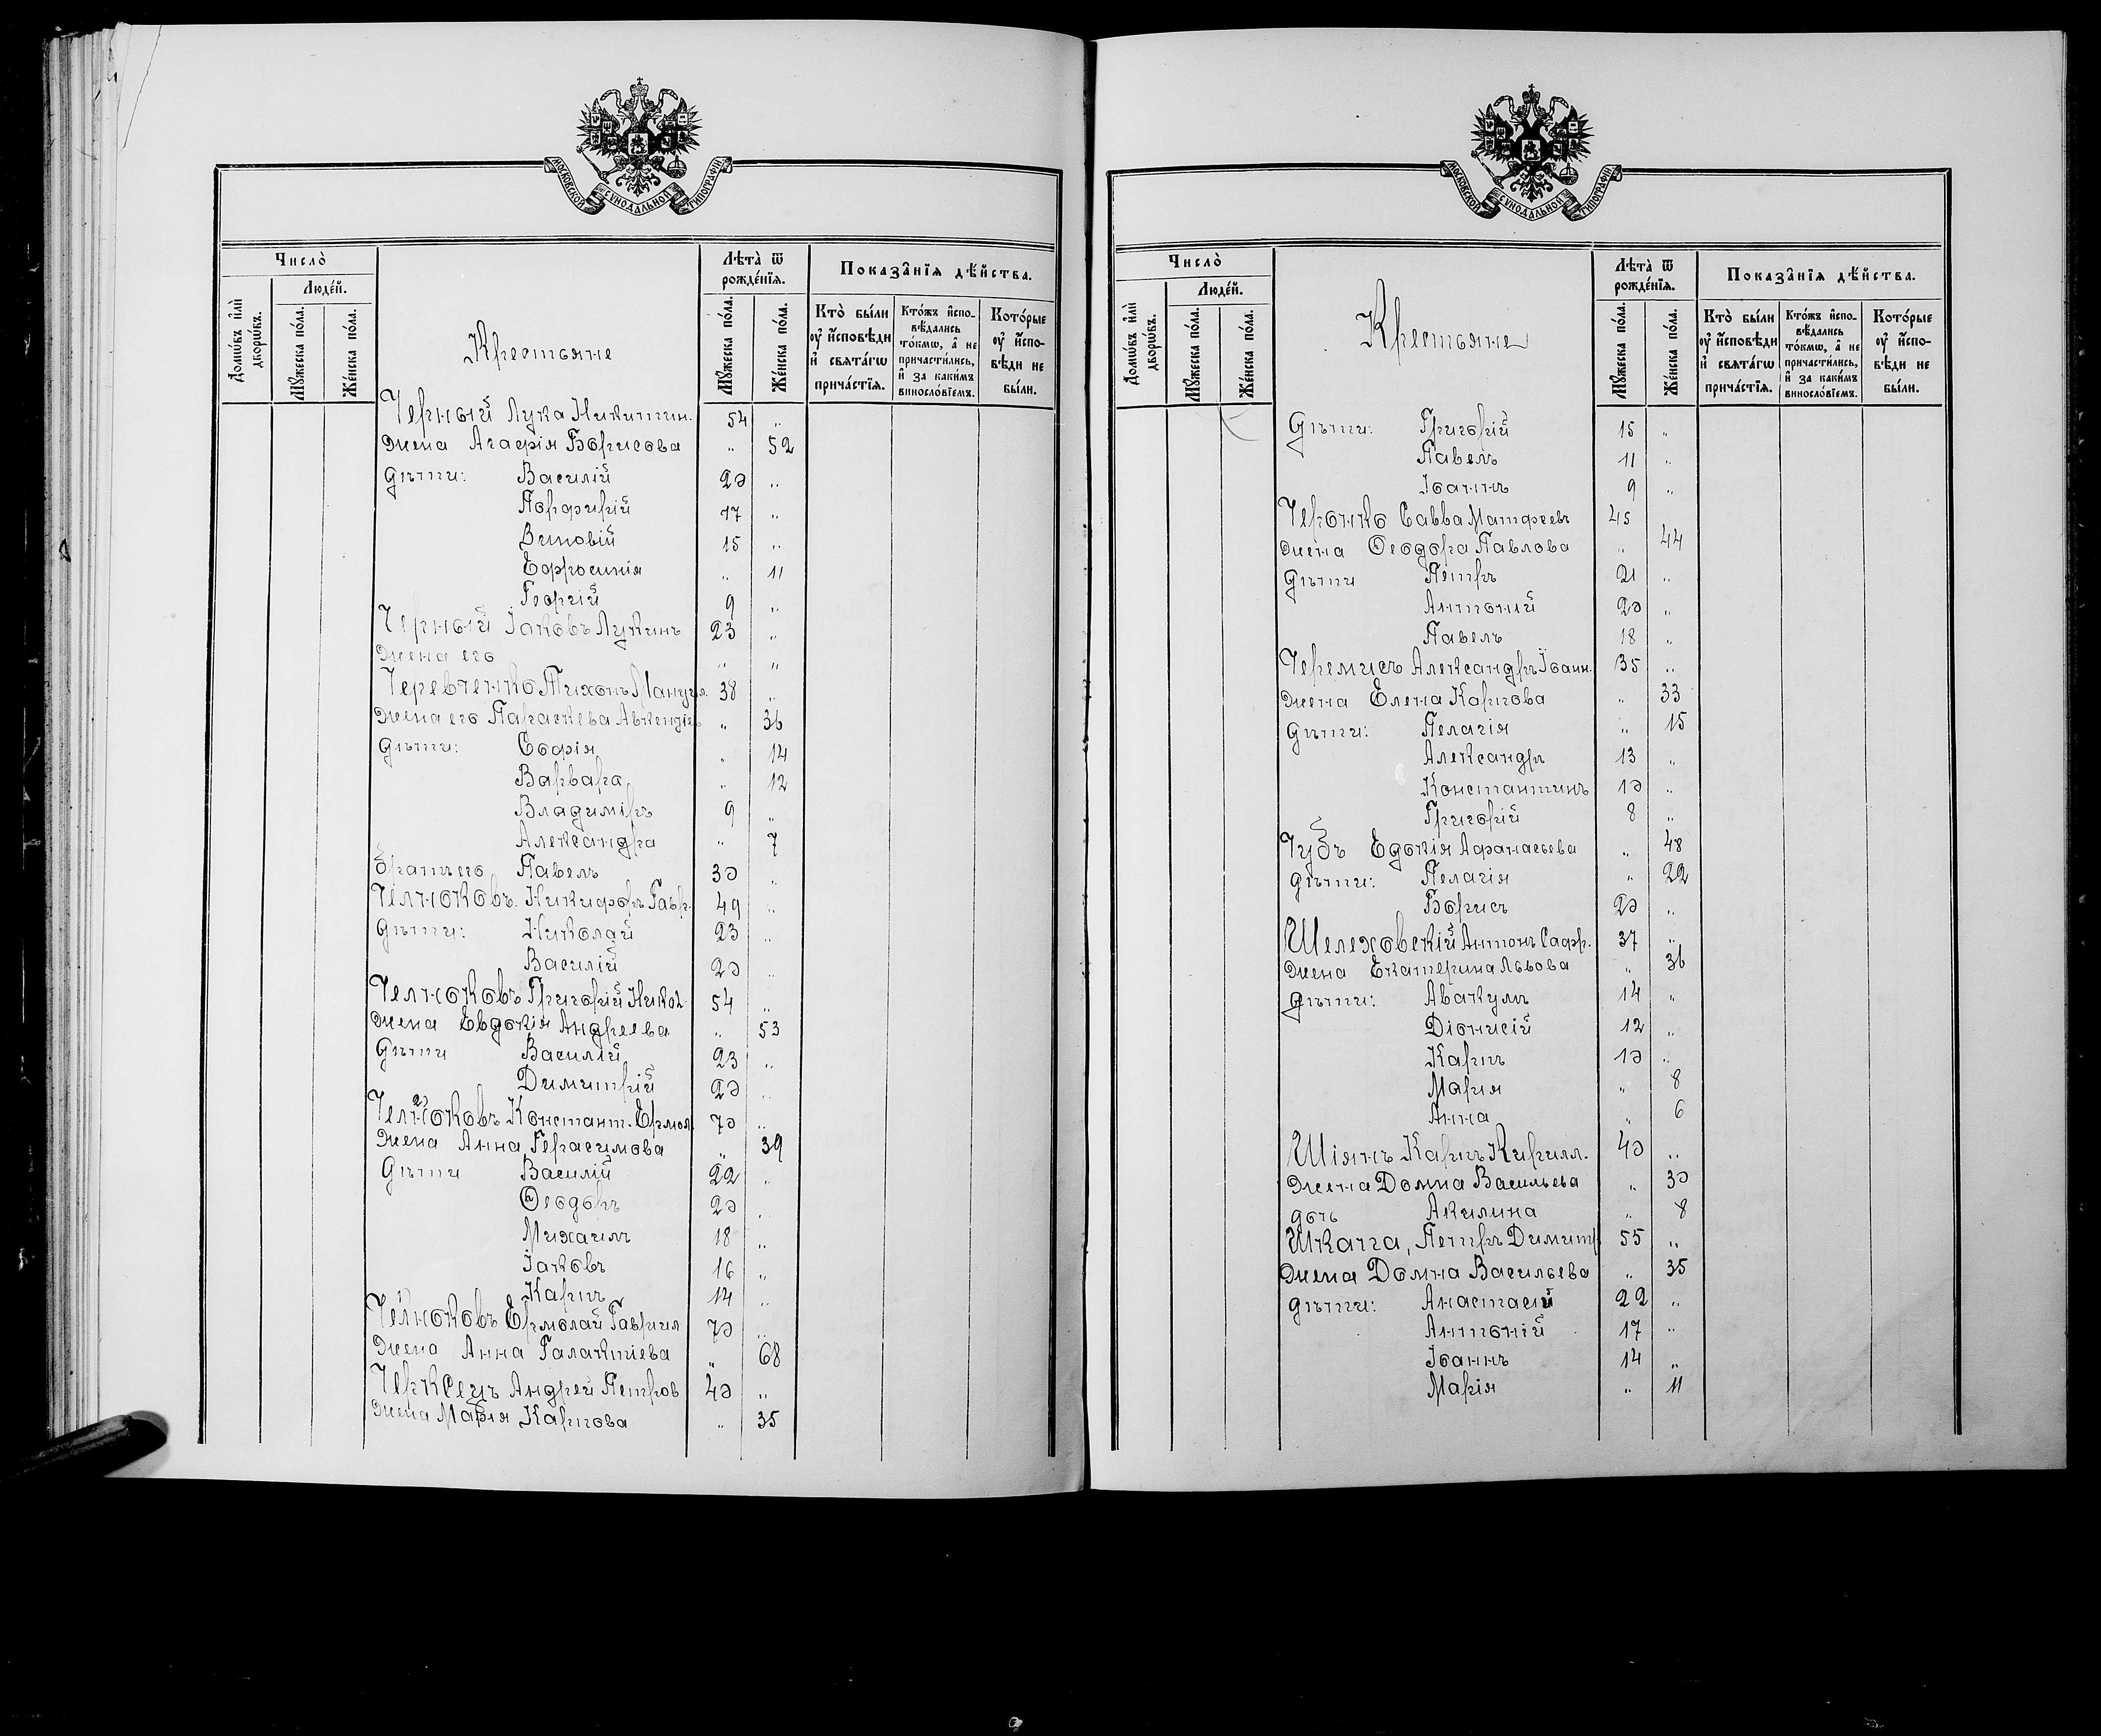 МОСКОВСКОЙ СѴНОДАЛЬНОЙ ТИПОГРАФІИ
Число̀
Люде́й.
Домѡ́въ и҆лѝ дворѡ́въ.
Мꙋ́жеска по́ла.
Же́нска по́ла.
Крестьяне
Лѣта̀ ѿ рожде́нїѧ.
Мꙋ́жеска по́ла.
Же́нска по́ла.
Показа̑нїѧ дѣ́йства.
Кто̀ бы́ли оу҆ и҆́сповѣди и҆ свѧта́гѡ прича́стїѧ.
Кто́жъ и҆спо-
вѣ́дались
то́кмѡ, а҆ не
причасти́лись,
и҆ за каки́мъ
виносло́вїемъ.
Кото́рые оу҆ и҆́спо-
вѣди не бы́ли.
Черный Лука Никитин. 54 „
жена Агафія Борисова „ 52
дѣти: Василій 20 „
Порфирій 17 „
Зиновій 15 „
Ефросинія „ 11
Георгій 9 „
Черный Іаковъ Лукинъ 23 „
жена его „ „
Черевченко Тихонъ Мануил. 38 „
жена его Параскева „ 36
дѣти: Софія „ 14
Варвара „ 12
Владиміръ 9 „
Александра „ 7
братъ его Павелъ 30 „
Челноковъ Никифоръ Гавр. 49 „
дѣти: Николай 23 „
Василій 20 „
Челноковъ Григорій Никол. 54 „
жена Евдокія Андреева „ 53
дѣти Василій 23 „
Димитрій 20 „
Челноковъ Констант. Ермол. 70 „
жена Анна Герасимова „ 39
дѣти Василій 22 „
Ѳеодоръ 20 „
Михаилъ 18 „
Іаковъ 16 „
Карпъ 14 „
Челноковъ Ермолай Гавриил. 70 „
жена Анна Галактіева „ 68
Черксецъ Андрей Петров 40 „
жена Марія Карпова „ 35
МОСКОВСКОЙ СѴНОДАЛЬНОЙ ТИПОГРАФІИ
Число̀
Люде́й.
Домѡ́въ и҆лѝ дворѡ́въ.
Мꙋ́жеска по́ла.
Же́нска по́ла.
Крестьяне
Лѣта̀ ѿ рожде́нїѧ.
Мꙋ́жеска по́ла.
Же́нска по́ла.
Показа̑нїѧ дѣ́йства.
Кто̀ бы́ли оу҆ и҆́сповѣди и҆ свѧта́гѡ прича́стїѧ.
Кто́жъ и҆спо-
вѣ́дались
то́кмѡ, а҆ не
причасти́лись,
и҆ за каки́мъ
виносло́вїемъ.
Кото́рые оу҆ и҆́спо-
вѣди не бы́ли.
дѣти: Григорій 15 „
Павелъ 11 „
Іоаннъ 9 „
Черонко Савва Матфеевъ 45
жена Ѳеодора Павлова „ 44
дѣти Петръ 21 „
Антоний 20 „
Павелъ 18 „
Черемисъ Александръ Іоанн. 35 „
жена Елена Карпова „ 33
дѣти: Пелагія „ 15
Александръ 13 „
Константинъ 10 „
Григорій 8 „
Чубъ Едокія Афанасьева „ 48
дѣти: Пелагія „ 22
Борисъ 20 „
Шелеховскій Антонъ Сафр. 37 „
жена Екатерина Львова „ 36
дѣти: Авакумъ 14 „
Діонисій 12 „
Карпъ 10 „
Мария „ 8
Анна „ 6
Шіянъ Карпъ Кирилл. 40 „
жена Домна Васильева „ 30
дочь Акилина „ 8
Шкапа, Петръ Димитр. 55 „
жена Домна Васильева „ 35
дѣти: Анастасій 22 „
Антоній 17 „
Іоаннъ 14 „
Марія „ 11